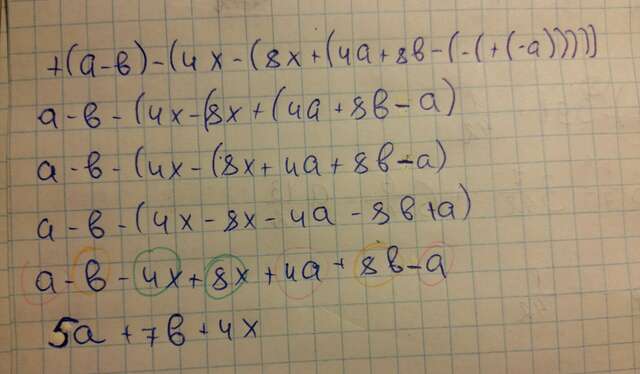 +(a-в)-(4x-(8x+(4a+8в-(-(+(-a)))))
a-в-(4x-(8x+(4a+8в-a)
a-в-(4x-(8x+4a+8в-a)
a-в-(4x-8x-4a-8в+a)
a-в-4x+8x+4a+8в-a
5a+7в+4x